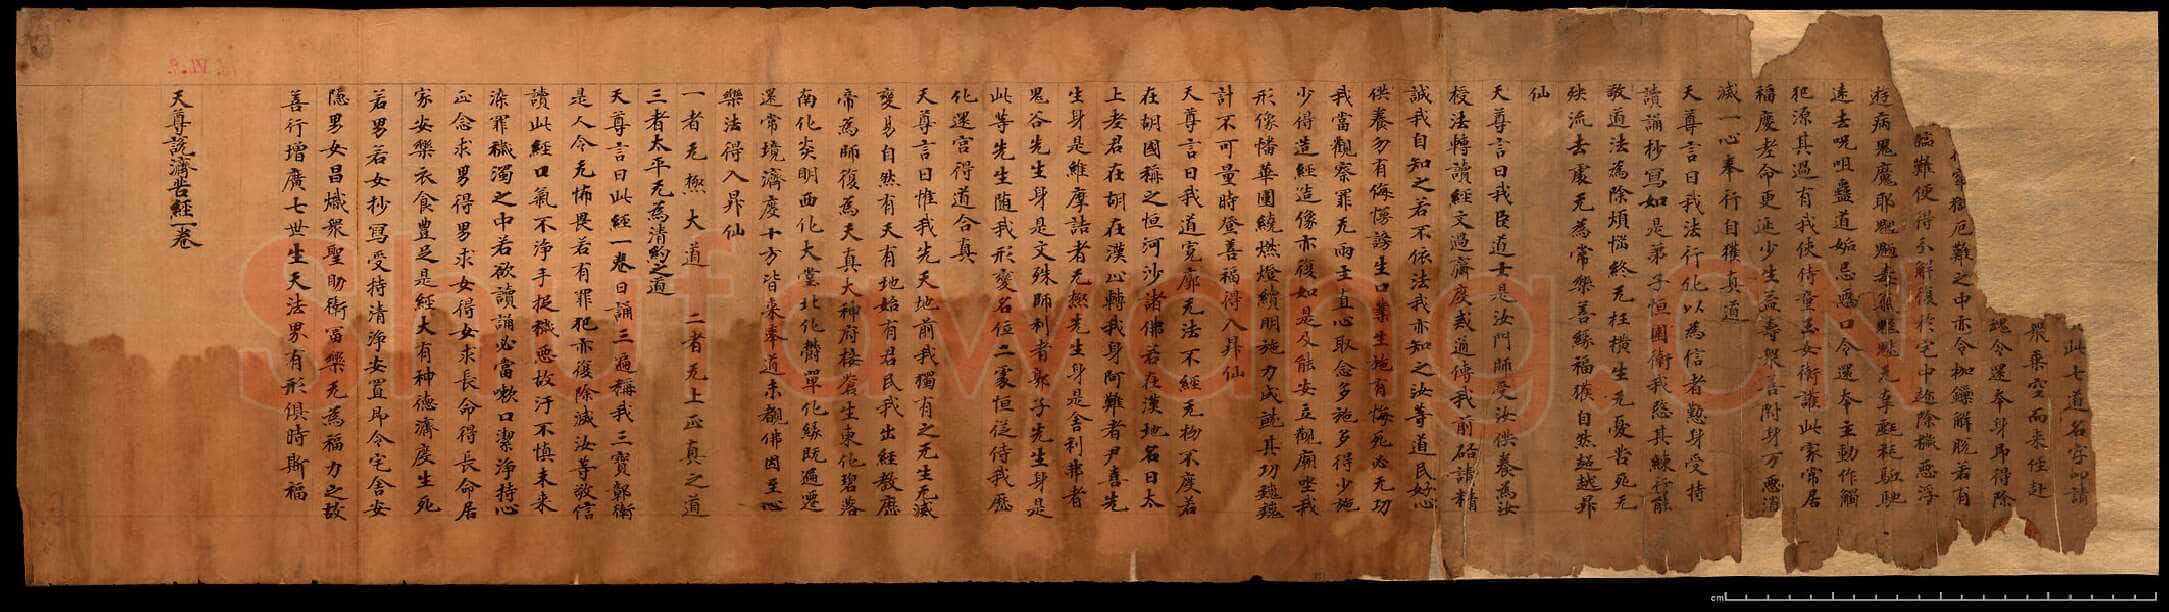 此七道名字即請
衆乗空而来任赴
魂令還奉身即得除
厄難之中亦令枷鏁解脫若有
臨難便得解復於宅中拖除穢惡浮
遊病鬼魔耶
遠去呪咀蠱道妬忌惡口令還本主動作觸
犯源其過有我使侍童玉女衛護此家常居
福慶老命更延少生益壽舉善附身万惡消
滅一心奉行自獲真道
天尊言曰我法行化以為信者懃身受持
讀誦抄寫如是弟子恒圍衛我愍其練行能
敬道法為除煩惱終无枉橫生无憂苦死无
殃流去處无為常樂善緣福獲自然超越昇
仙
天尊言曰我臣道士是汝門師受汝供養為汝
授法轉讀經文過齋度戒逥傳我前啓請精
誠我自知之若不依法我亦知之汝等道民好心
供養勿有侮慢謗生口業生施有悔死亦无功
我當觀察罪无兩主直心取念多施多得少施
少得造經造像亦復如是及能安立觀廟堂我
形像幡華圍繞燃燈續明施力成就其功巍巍
計不可可量時登善福得入昇仙
天尊言曰我道寬廓无法不經无物不度若
在胡國稱之恒河沙諸佛若在漢地名曰太
上老君在胡在漢心轉我身阿難者尹喜先
生身是維摩詰者无極先生身是舍利弗者
鬼谷先生身是文殊師利者郭子先生身是
此等先生随我形變名位二家恒従侍我歷
化還宮得道合真
天尊言曰惟我先天地前我獨有之无生无滅
變易自然有天有地始有君民我出經教歷
帝為師復為天真大神府接蒼生東化碧落
南化炎明西化大堂北化欝單化緣既遍還
還常境濟度十方皆来奉道未覩佛因至心
樂法得入昇仙
一者无極大道二者无上正真之道
三者太平无為清約之道
天尊言曰此經一卷日誦三遍稱我三寶鄣衛
是人令无怖畏若有罪犯亦復除滅汝等敬信
讀此經口氣不淨手捉穢惡故汙不慎未来
染罪穢濁之中若欲讀誦必當漱口潔淨持心
正念求男得男求女得女求長命得長命居
家安樂衣食豊足是經大有神德濟度生死
若男若女抄寫受持清淨安置即令宅舍安
隱男女昌熾衆聖助衛冨樂无為福力之故
善行增廣七世生天法界有形俱時斯福
天尊說濟苦經一卷
VI.9.
Shufawang.CN
cm